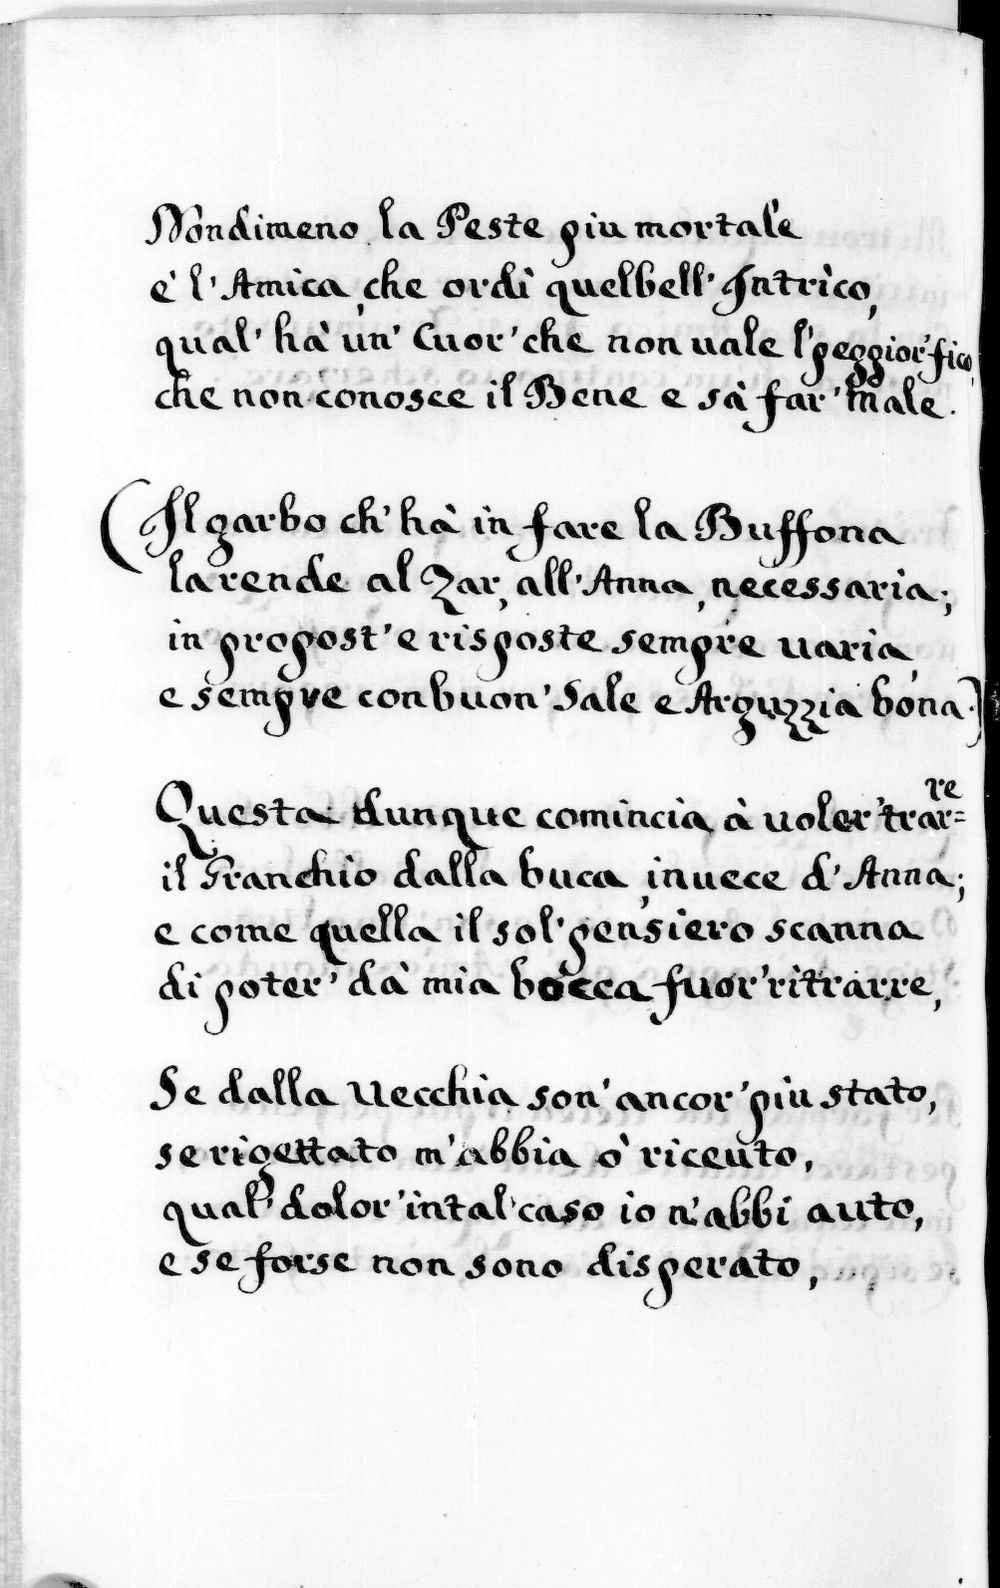 Nondimeno la Peste piu mortale
è l' Amica, che ordì quelbell' Intrico,
qual' hà un' Cuor' che non uale l' peggior' fico,
che non conosce il Bene e sà far' male.
(Il garbo ch' hà in fare la Buffona
la rende al Zar, all' Anna, necessaria;
in propost' e risposte sempre uaria,
e sempre con buon' Sale e Arguzzia bona.)
Questa dunque comincia à uoler' trar=re
il Granchio dalla buca, inuece d' Anna;
e come quella il sol' pensiero scanna
di poter' dà mia bocca fuor' ritrarre,
Se dalla Uecchia son' ancor' più stato,
se rigettato m' abbia ò riceuto,
qual' dolor' intal' caso io n' abbi auto,
e se forse non sono disperato,